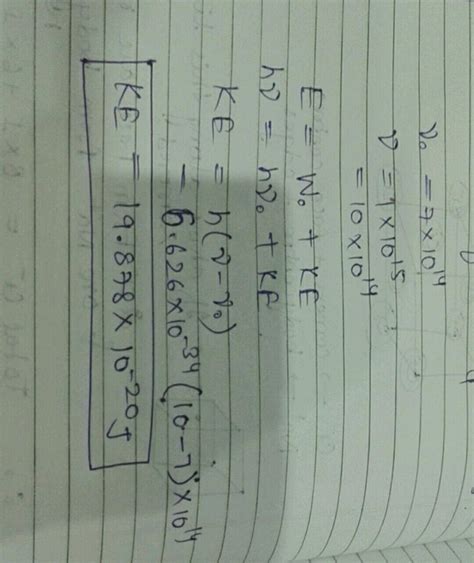 ν₀ = 7×10¹⁴
ν = 1×10¹⁵
= 10×10¹⁴
E = W₀ + KE
hν = hν₀ + KE
KE = h(ν-ν₀)
= 6.626×10⁻³⁴(10-7)×10¹⁴
KE = 19.878×10⁻²⁰J